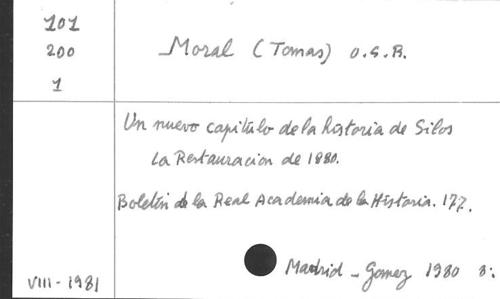 101
200
1
Moral (Tomas) O.S.B.
Un nuevo capitulo de la historia de Silos
La Restauracion de 1880.
Boletín de la Real Academia de la Historia. 177.
Madrid - Gomez 1980 8:
VIII - 1981